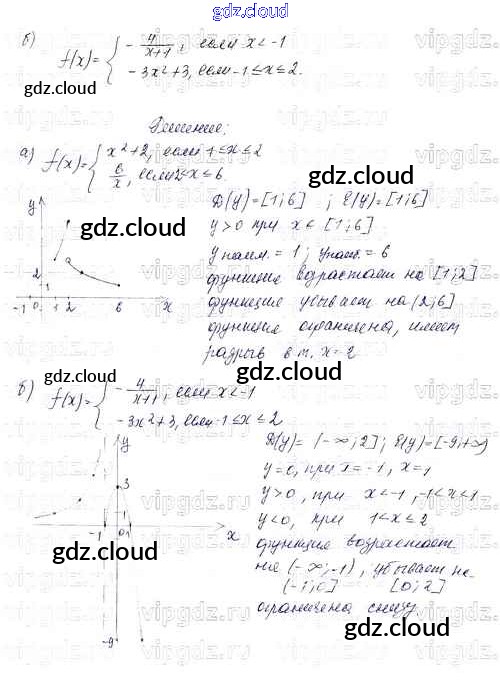 gdz.cloud
б) f(x)= { - 4/(x+1), если x < -1
- 3x² + 3, если -1 ≤ x ≤ 2.
gdz.cloud
Решение:
а) f(x)= { x² + 2, если 1 ≤ x ≤ 2
6/x, если 2 < x ≤ 6.
gdz.cloud
D(y) = [1; 6] ; E(y) = [1; 6]
y > 0 при x ∈ [1; 6]
y наим. = 1 ; y наиб. = 6
функция возрастает на [1; 2]
функция убывает на (2; 6]
функция ограничена, имеет
разрыв в т. x = 2
y
2
1
-1 0 1 2 6 x
gdz.cloud
gdz.cloud
б) f(x)= { - 4/(x+1), если x < -1
- 3x² + 3, если -1 ≤ x ≤ 2
D(y) = (-∞; 2] ; E(y) = [-9; +∞)
y = 0, при x = -1, x = 1
y > 0, при x < -1, -1 < x < 1
y < 0, при 1 < x ≤ 2
функция возрастает
на (-∞; -1), убывает на
(-1; 0] [0; 2]
ограничена снизу.
y
3
1
-1 0 1 x
-9
gdz.cloud
gdz.cloud
vipgdz.ru